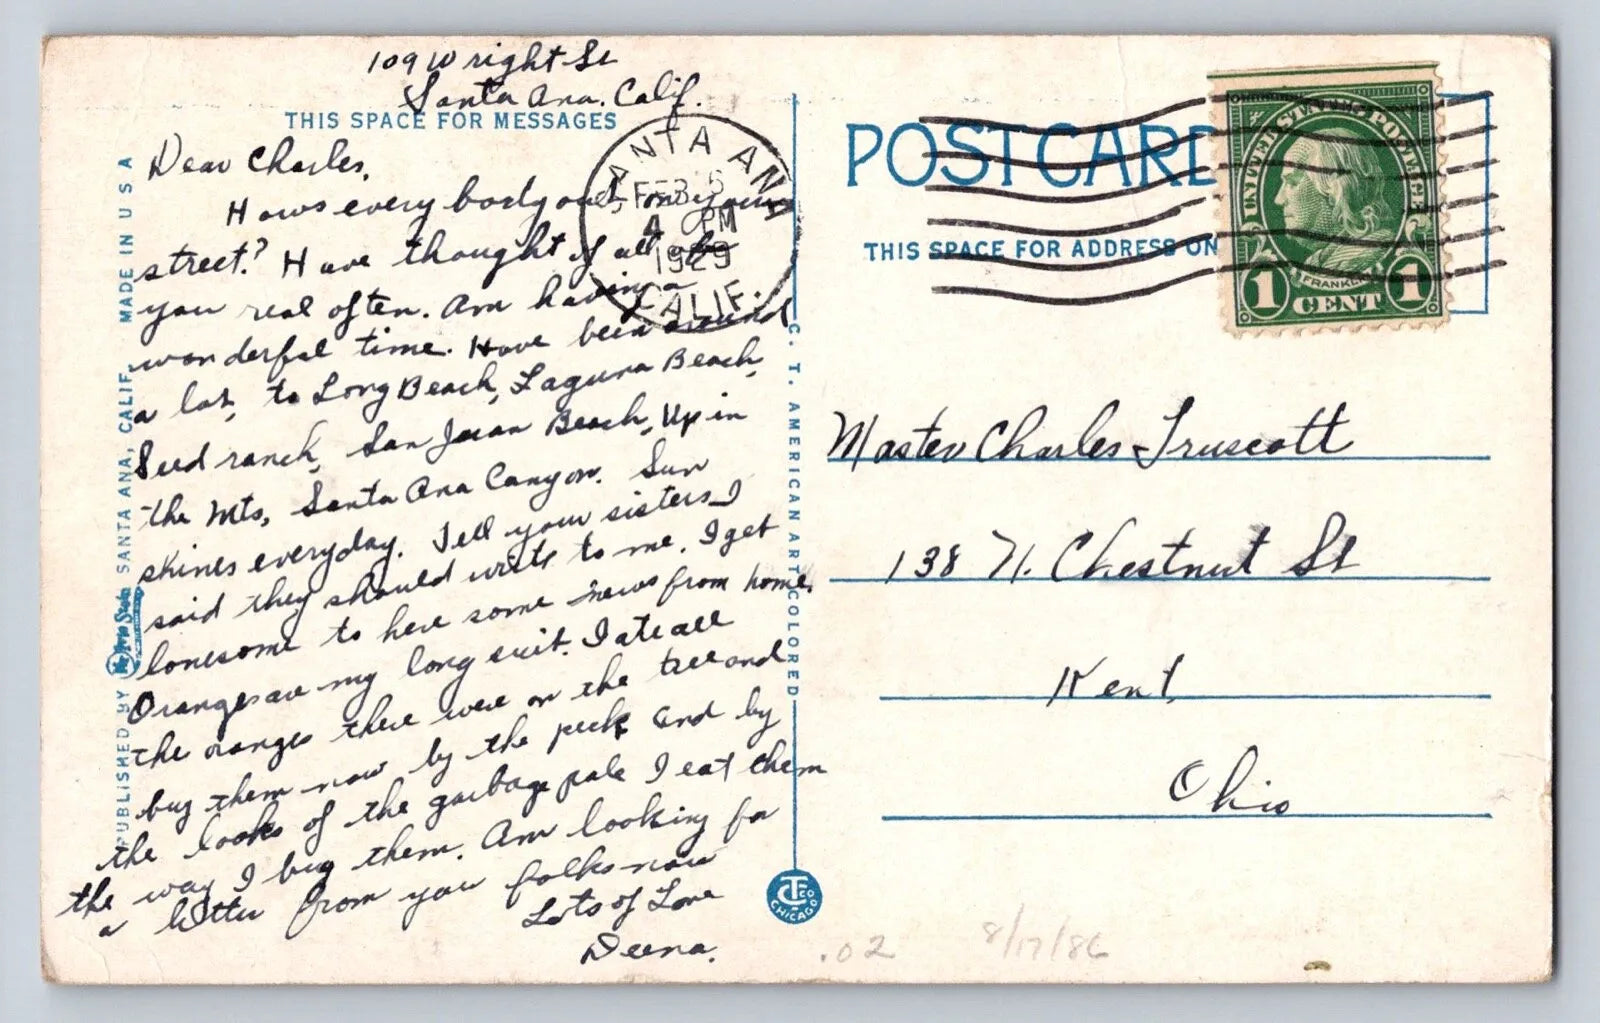 109 Wright St
Santa Ana. Calif.
THIS SPACE FOR MESSAGES
Dear Charles,
Hows every body out on your
street? Have thought of all of
you real often. Am having a
wonderful time. Have been around
a lot, to Long Beach, Laguna Beach,
Seed ranch, San Juan Beach, Up in
the Mts, Santa Ana Canyon. Sun
shines everyday. Tell your sisters I
said they should write to me. I get
lonesome to here some news from home.
Oranges are my long suit. I ate all
the oranges there were on the tree and
buy them now by the peck and by
the looks of the garbage pale I eat them
the way I buy them. Am looking for
a letter from you folks now
Lots of Love
Deena.
PUBLISHED BY SANTA ANA, CALIF. MADE IN U S A
SANTA ANA
FEB
PM
1929
CALIF.
C. T. AMERICAN ART COLORED
C T CO
CHICAGO
POSTCARD
THIS SPACE FOR ADDRESS ON
UNITED STATES POSTAGE
FRANKLIN
1 CENT 1
Master Charles Truscott
138 N. Chestnut St
Kent
Ohio
.02 8/17/86